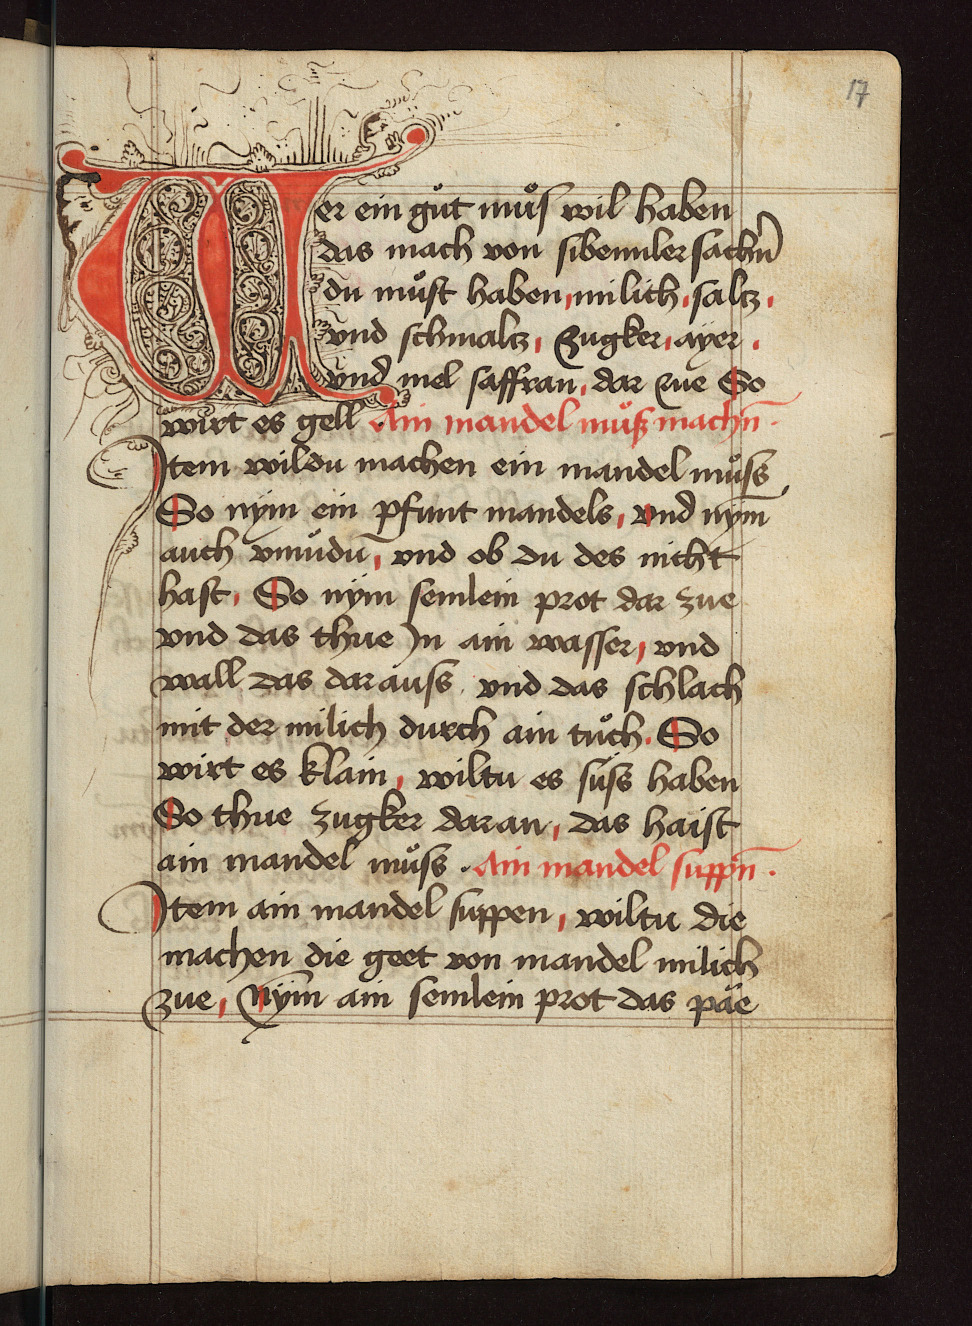 17
Wer ein gůt můs wil haben
das mach von sibennler sachn̄
du můst haben, milich, saltz,
vnd schmaltz, Zugker, ayer,
vnd mel saffran, dar zue So
wirt es gell Ain mandel můß machn̄.
Item wildu machen ein mandel můss
So nym ein pfunt mandels, vnd nym
auch vnnůdu, vnd ob du des nicht
hast, So nÿm semlein prot dar zue
vnd das thue In ain wasser, vnd
wall das darauss, vnd das schlach
mit der milich durch ain tůch. So
wirt es klain, wiltu es süss haben
So thue zugker daran, das haist
ain mandel můss. Ain mandel suppn̄.
Item ain mandel suppen, wiltu die
machen die geet von mandel milich
zue, Nÿm ain semlein prot das päe